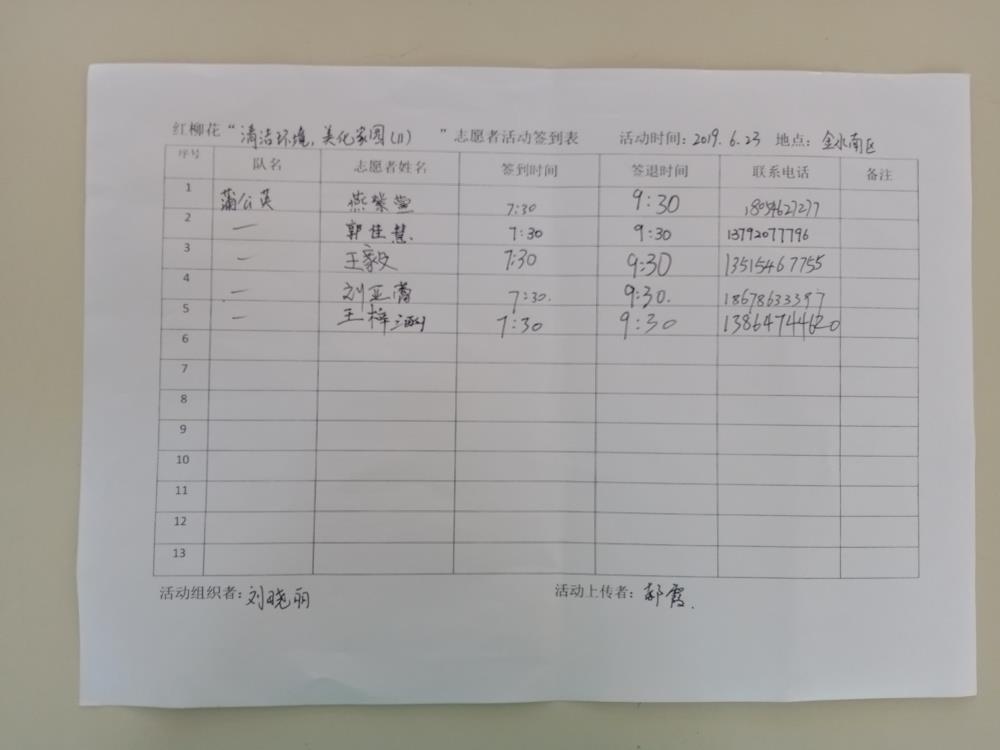 红柳花“清洁环境,美化家园(11)”志愿者活动签到表 活动时间:2019.6.23 地点:金水南区
序号 队名 志愿者姓名 签到时间 签退时间 联系电话 备注
1 蒲公英 燕紫萱 7:30 9:30 18054627277
2 一 郭佳慧 7:30 9:30 13792077796
3 一 王毅 7:30 9:30 13515467755
4 一 刘亚蕾 7:30. 9:30. 18678633397
5 一 王梓涵 7:30 9:30 13864744620
6
7
8
9
10
11
12
13
活动组织者:刘晓丽 活动上传者:郭霞.